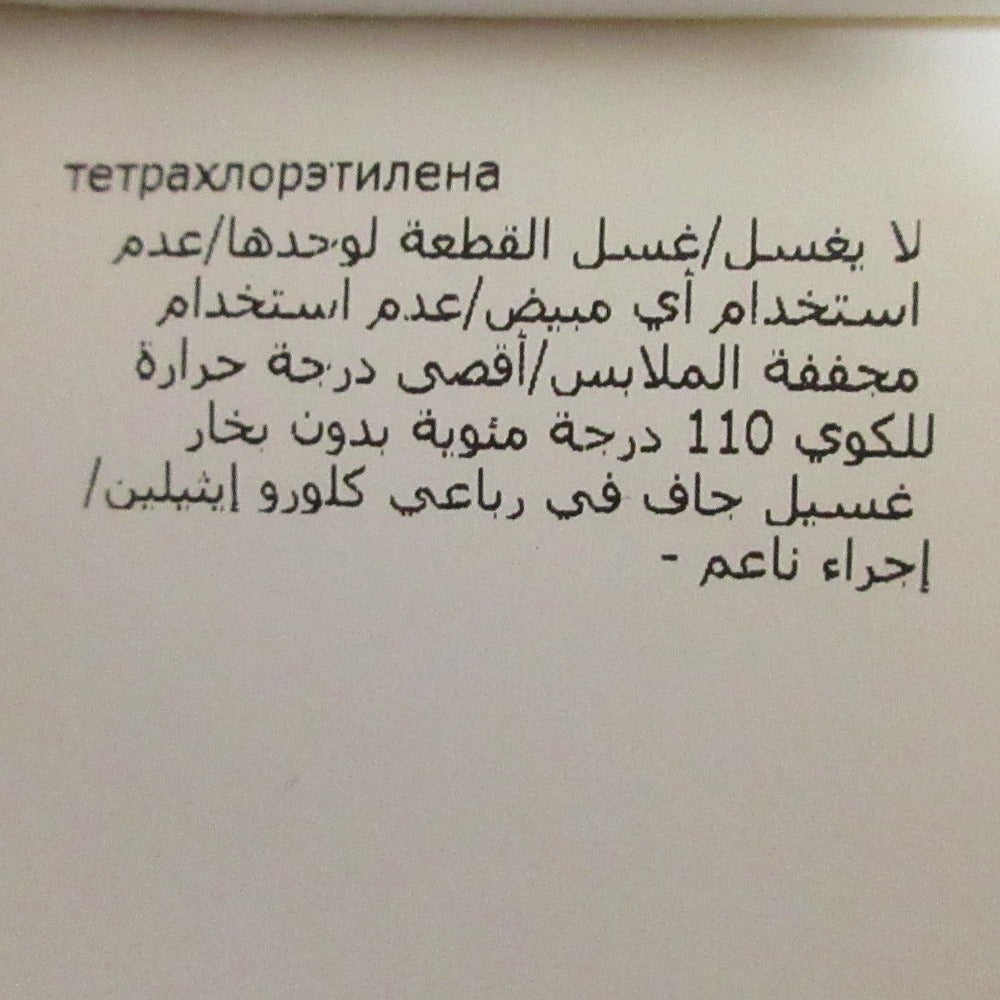 тетрахлорэтилена
لا يغسل/غسل القطعة لوحدها/عدم
استخدام أي مبيض/عدم استخدام
مجففة الملابس/أقصى درجة حرارة
للكوي 110 درجة مئوية بدون بخار
غسيل جاف في رباعي كلورو إيثيلين/
إجراء ناعم -